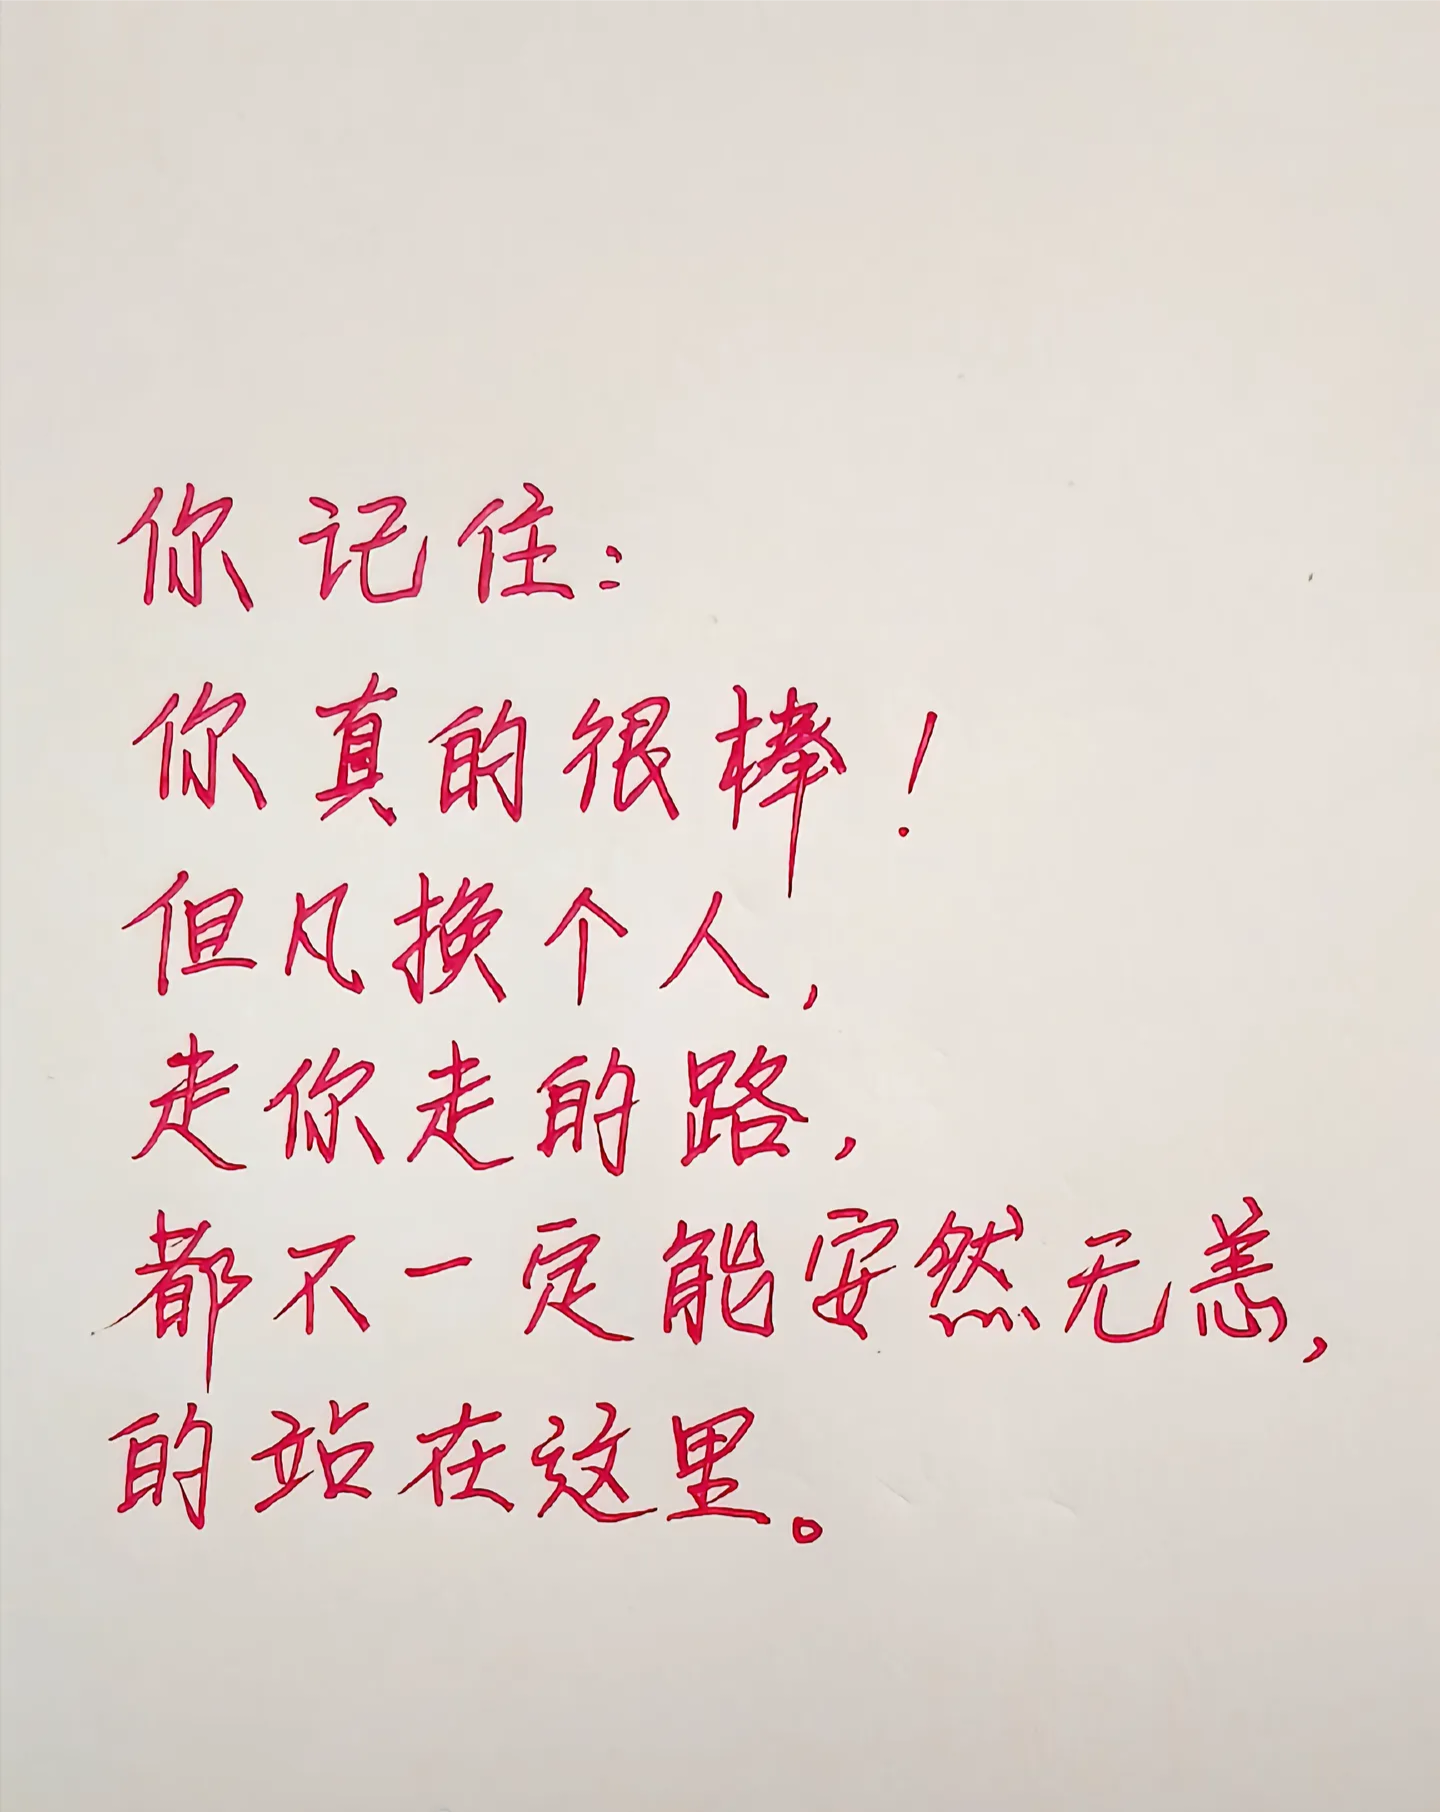 你记住:
你真的很棒!
但凡换个人,
走你走的路,
都不一定能安然无恙,
的站在这里。